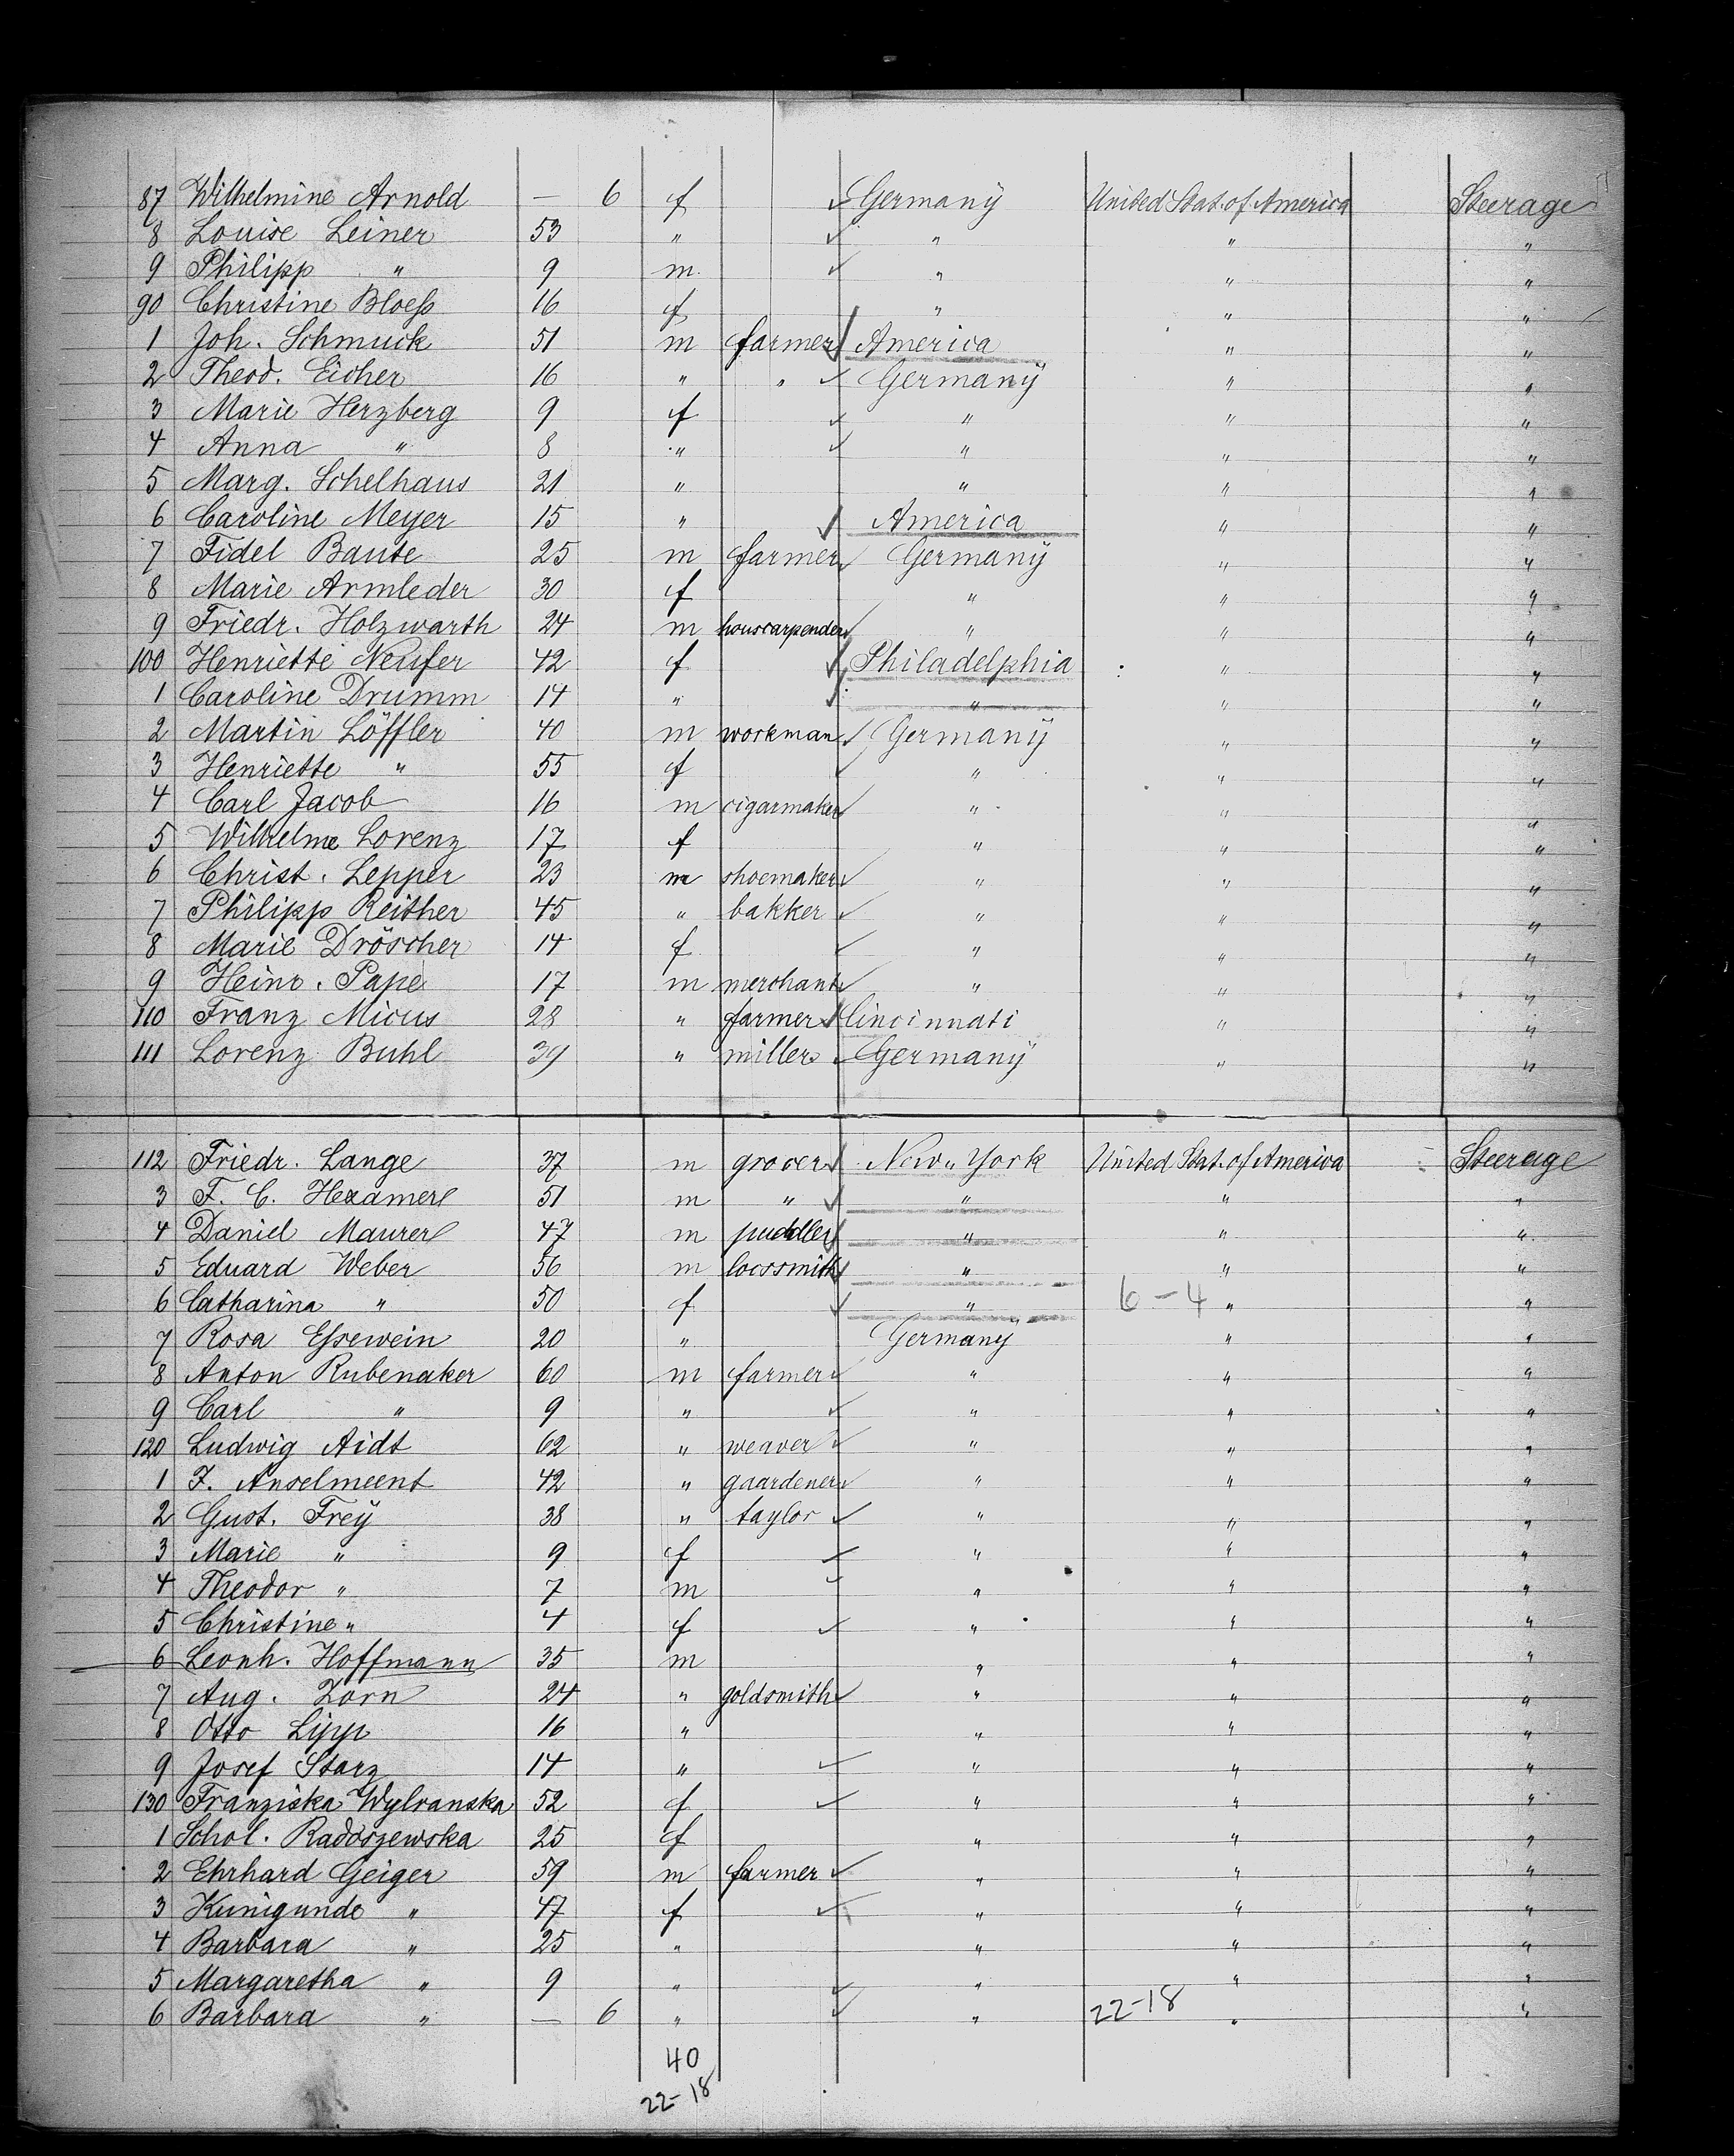 87 Wilhelmine Arnold — 6 f Germany United Stat. of America Steerage
8 Louise Leiner 53 " " " "
9 Philipp " 9 m. " " "
90 Christine Bloeß 16 f " " "
1 Joh. Schmuck 51 m farmer America " "
2 Theod. Eicher 16 " " Germany " "
3 Marie Herzberg 9 f " " "
4 Anna " 8 " " " "
5 Marg. Schelhaus 21 " " " "
6 Caroline Meyer 15 " America " "
7 Fidel Baute 25 m farmer Germany " "
8 Marie Armleder 30 f " " "
9 Friedr. Holzwarth 24 m houscarpender " " "
100 Henriette Neufer 42 f Philadelphia " "
1 Caroline Drumm 14 " " " "
2 Martin Löffler 40 m workman Germany " "
3 Henriette " 55 f " " "
4 Carl Jacob 16 m cigarmaker " " "
5 Wilhelme Lorenz 17 f " " "
6 Christ. Lepper 23 m shoemaker " " "
7 Philipp Reither 45 " bakker " " "
8 Marie Dröscher 14 f " " "
9 Heinr. Pape 17 m merchant " " "
110 Franz Micus 28 " farmer Cincinnati " "
111 Lorenz Buhl 39 " miller Germany " "
112 Friedr. Lange 37 m grocer New-York United Stat. of America Steerage
3 F. C. Hexamer 51 m " " " "
4 Daniel Maurer 47 m puddler " " "
5 Eduard Weber 56 m locssmith " " "
6 Catharina " 50 f " 6-4 " "
7 Rosa Eßewein 20 " Germany " "
8 Anton Rubenaker 60 m farmer " " "
9 Carl " 9 " " " "
120 Ludwig Aidt 62 " weaver " " "
1 J. Anselmeent 42 " gaardener " " "
2 Gust. Frey 38 " taylor " " "
3 Marie " 9 f " " "
4 Theodor " 7 m " " "
5 Christine " 4 f " " "
6 Leonh. Hoffmann 35 m " " "
7 Aug. Zorn 24 " goldsmith " " "
8 Otto Lipp 16 " " " "
9 Josef Starz 14 " " " "
130 Franziska Wylvanska 52 f " " "
1 Schol. Radoszewska 25 f " " "
2 Ehrhard Geiger 59 m farmer " " "
3 Kunigunde " 47 f " " "
4 Barbara " 25 " " " "
5 Margaretha " 9 " " " "
6 Barbara " — 6 " " 22-18 " "
40
22-18